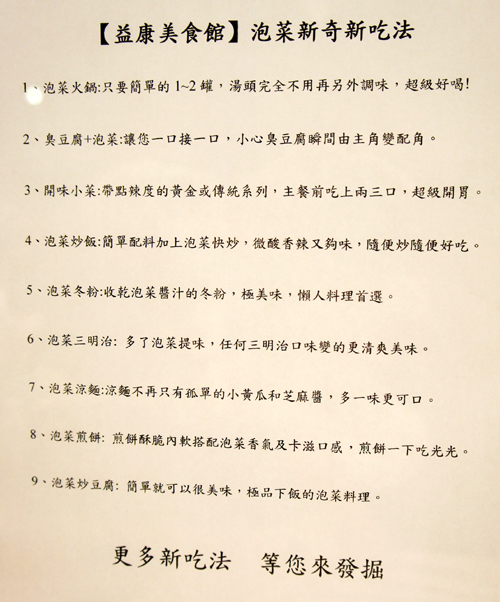 【益康美食館】泡菜新奇新吃法
1、泡菜火鍋:只要簡單的1~2罐，湯頭完全不用再另外調味，超級好喝!
2、臭豆腐+泡菜:讓您一口接一口，小心臭豆腐瞬間由主角變配角。
3、開味小菜:帶點辣度的黃金或傳統系列，主餐前吃上兩三口，超級開胃。
4、泡菜炒飯:簡單配料加上泡菜快炒，微酸香辣又夠味，隨便炒隨便好吃。
5、泡菜冬粉:收乾泡菜醬汁的冬粉，極美味，懶人料理首選。
6、泡菜三明治: 多了泡菜提味，任何三明治口味變的更清爽美味。
7、泡菜涼麵:涼麵不再只有孤單的小黃瓜和芝麻醬，多一味更可口。
8、泡菜煎餅: 煎餅酥脆內軟搭配泡菜香氣及卡滋口感，煎餅一下吃光光。
9、泡菜炒豆腐: 簡單就可以很美味，極品下飯的泡菜料理。
更多新吃法 等您來發掘